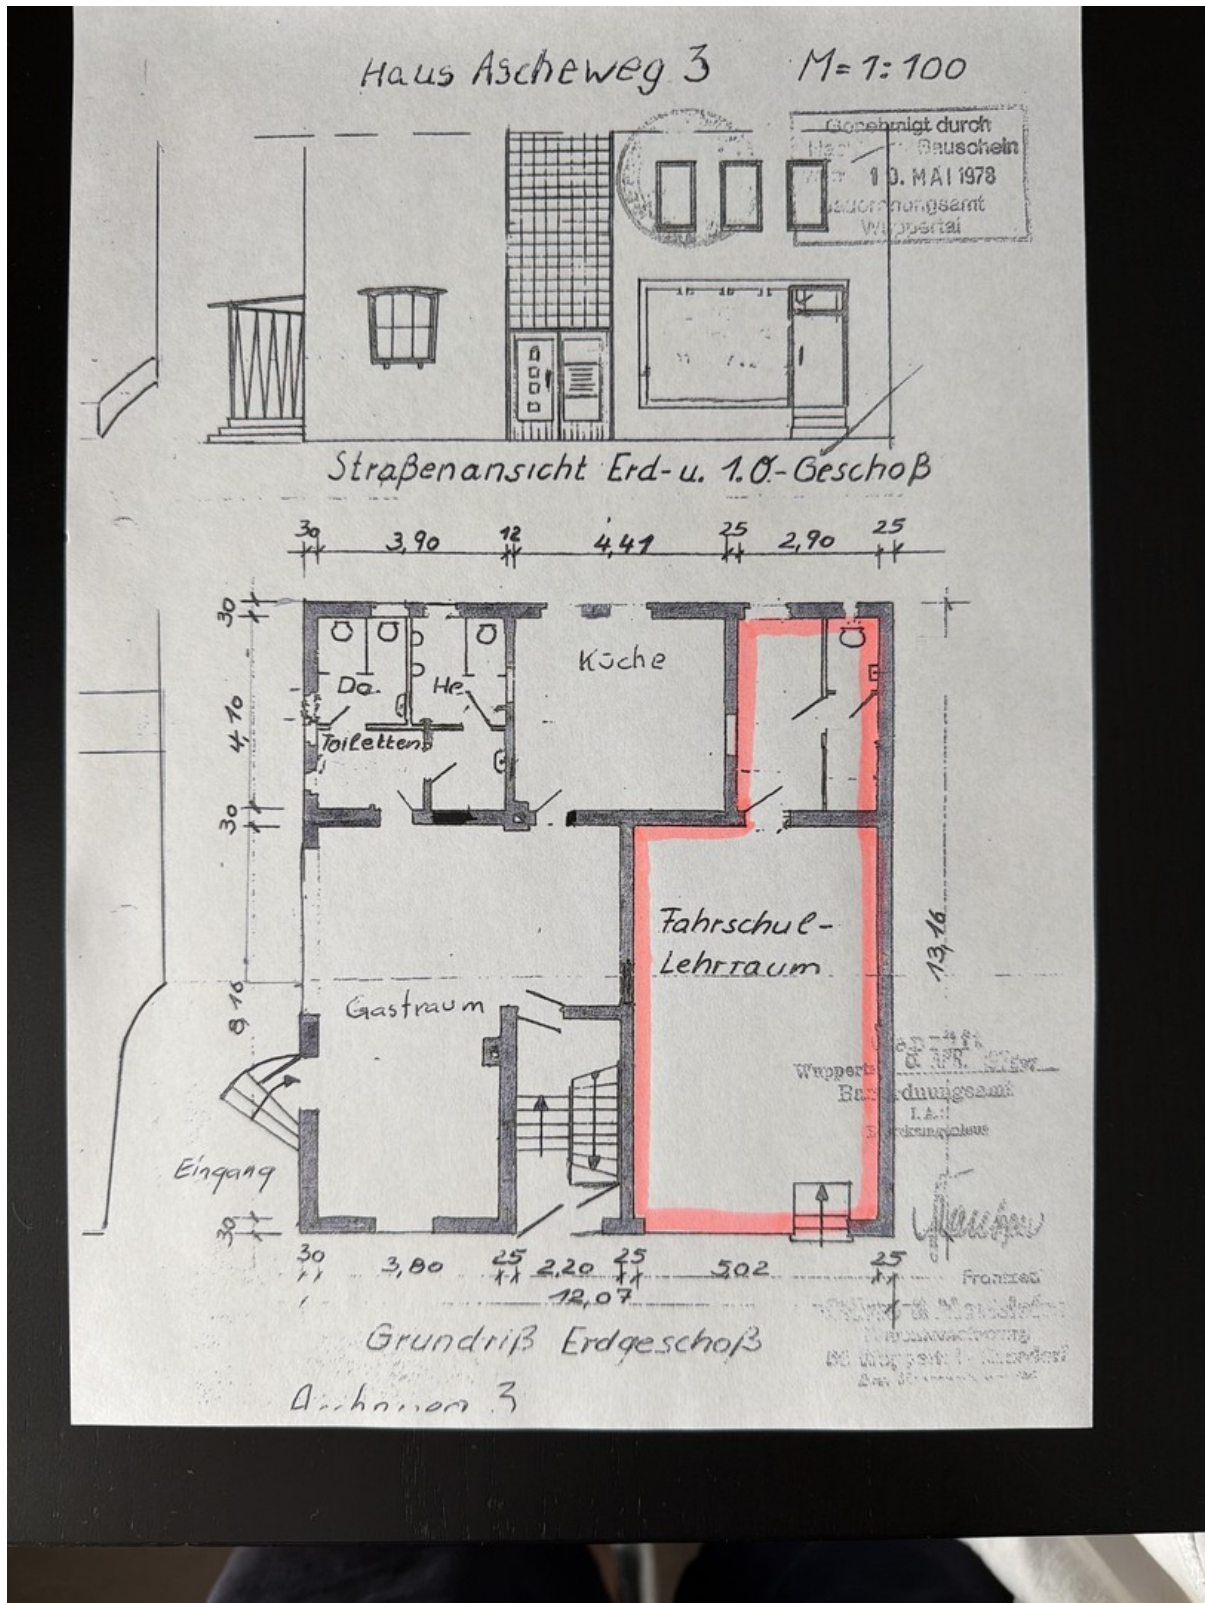 Haus Ascheweg 3 M=1:100
Genehmigt durch
Bauschein
10. MAI 1978
Bauordnungsamt
Wuppertal
Straßenansicht Erd- u. 1.O.-Geschoß
30 3,90 12 4,41 25 2,90 25
30
4,10
30
8,16
30
13,16
Küche
Da. He.
Toiletten
Fahrschul-
Lehrraum
Gastraum
Eingang
Bauordnungsamt
I. A.:
30 3,80 25 2,20 25 5,02 25
12,07
Grundriß Erdgeschoß
3